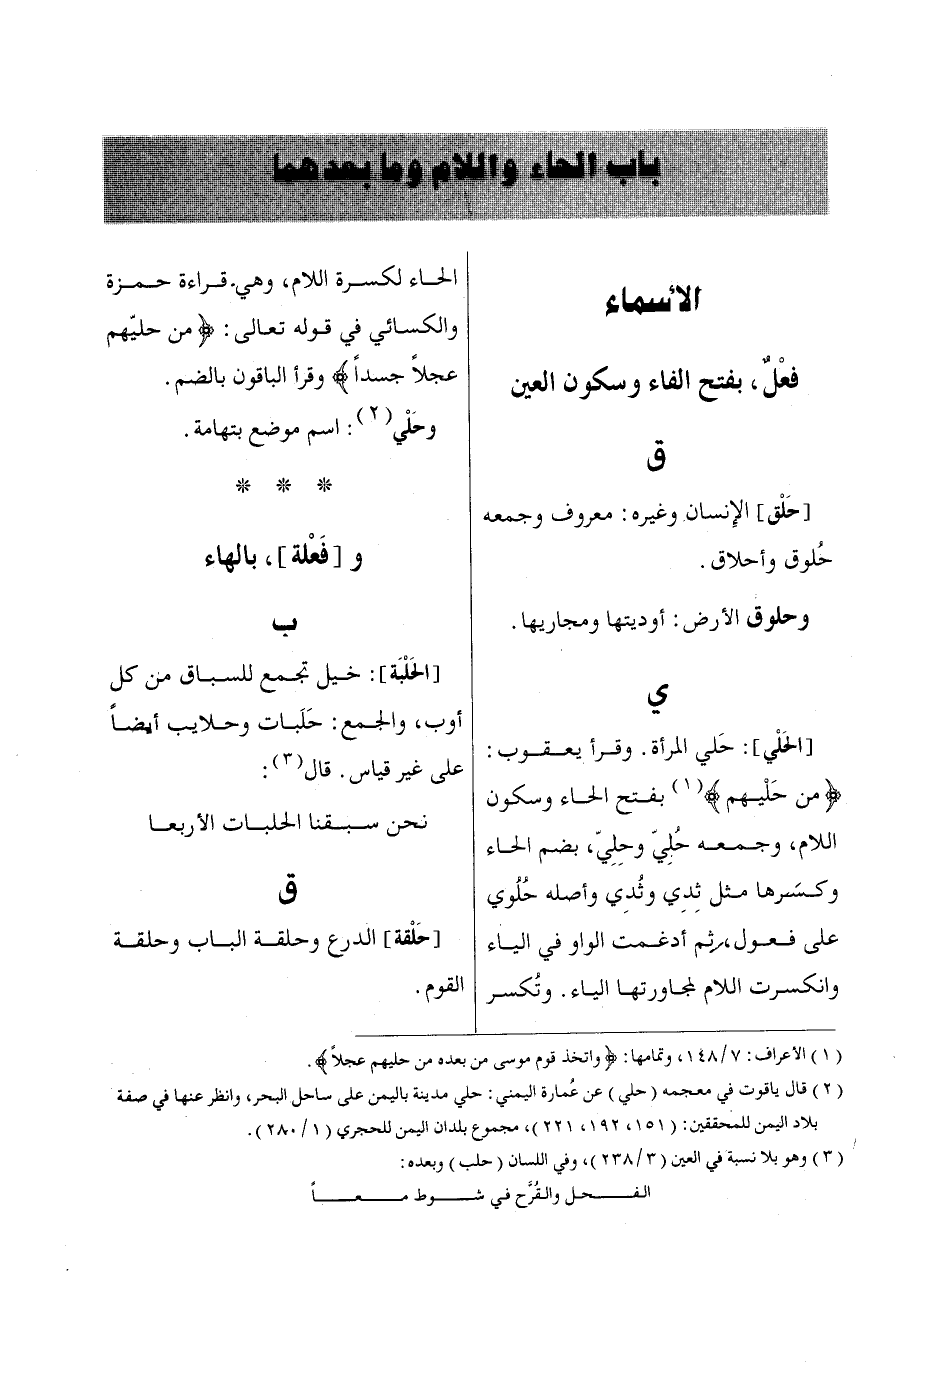 باب الحاء واللام وما بعدهما
الأسماء
فعْلٌ، بفتح الفاء وسكون العين
ق
[حَلْق] الإنسان وغيره: معروف وجمعه
حُلوق وأحلاق.
وحلوق الأرض: أوديتها ومجاريها.
ي
[الحَلْي]: حَلي المرأة. وقرأ يعقوب:
﴿من حَلْيهم﴾(١) بفتح الحاء وسكون
اللام، وجمعه حُلِيّ وحِلِيّ، بضم الحاء
وكسرها مثل ثِدِي وثُدِي وأصله حُلُوي
على فعول، ثم أدغمت الواو في الياء
وانكسرت اللام لمجاورتها الياء. وتُكسر
الحاء لكسرة اللام، وهي قراءة حمزة
والكسائي في قوله تعالى: ﴿من حليّهم
عجلاً جسداً﴾ وقرأ الباقون بالضم.
وحَلْي(٢): اسم موضع بتهامة.
* * *
و [فَعْلة]، بالهاء
ب
[الحَلْبَة]: خيل تجمع للسباق من كل
أوب، والجمع: حَلَبات وحلايب أيضاً
على غير قياس. قال(٣):
نحن سبقنا الحلبات الأربعا
ق
[حَلْقة] الدرع وحلقة الباب وحلقة
القوم.
(١) الأعراف: ١٤٨/٧، وتمامها: ﴿واتخذ قوم موسى من بعده من حليهم عجلاً﴾.
(٢) قال ياقوت في معجمه (حلي) عن عُمارة اليمني: حلي مدينة باليمن على ساحل البحر، وانظر عنها في صفة
بلاد اليمن للمحققين: (١٥١، ١٩٢، ٢٢١)، مجموع بلدان اليمن للحجري (٢٨٠/١).
(٣) وهو بلا نسبة في العين (٢٣٨/٣)، وفي اللسان (حلب) وبعده:
الفحل والقُرَّح في شوط معاً